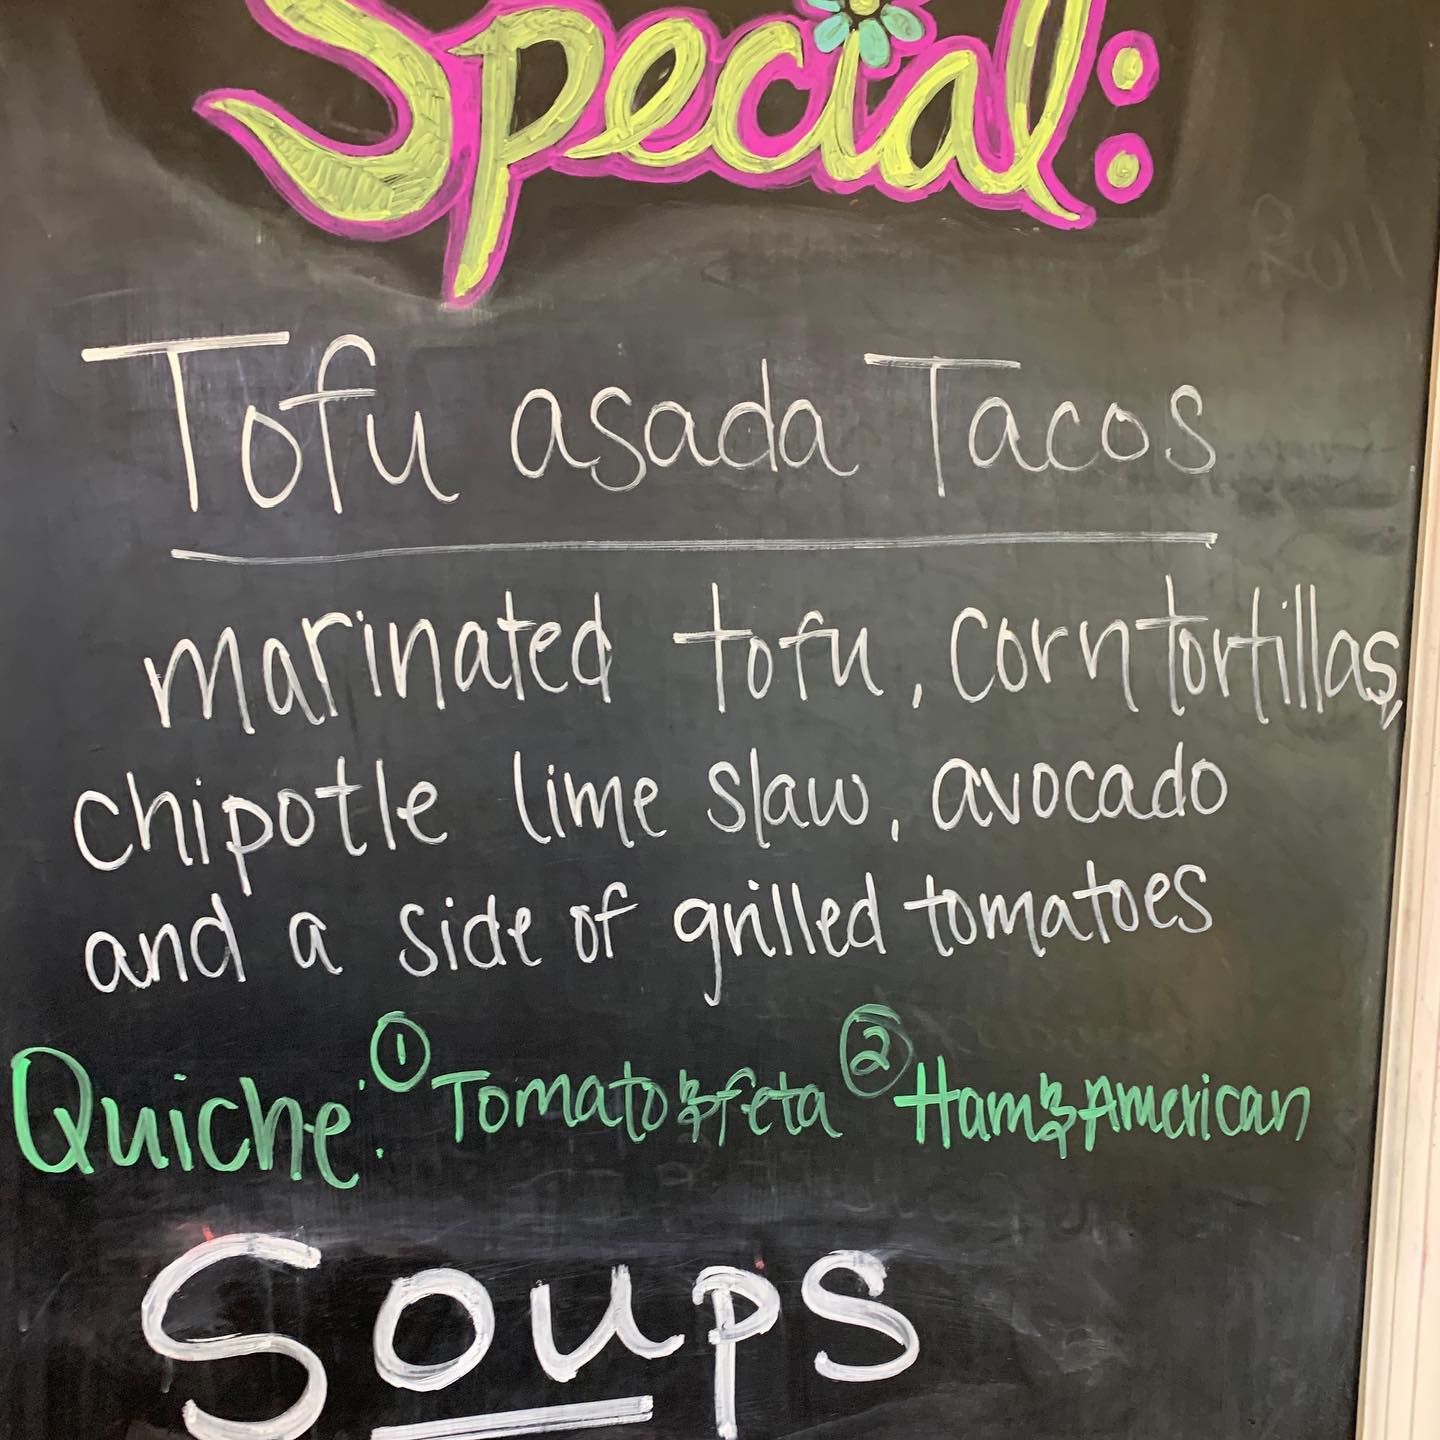 Special:
Tofu asada Tacos
marinated tofu, corn tortillas,
chipotle lime slaw, avocado
and a side of grilled tomatoes
Quiche: ① Tomato & feta ② Ham & American
Soups